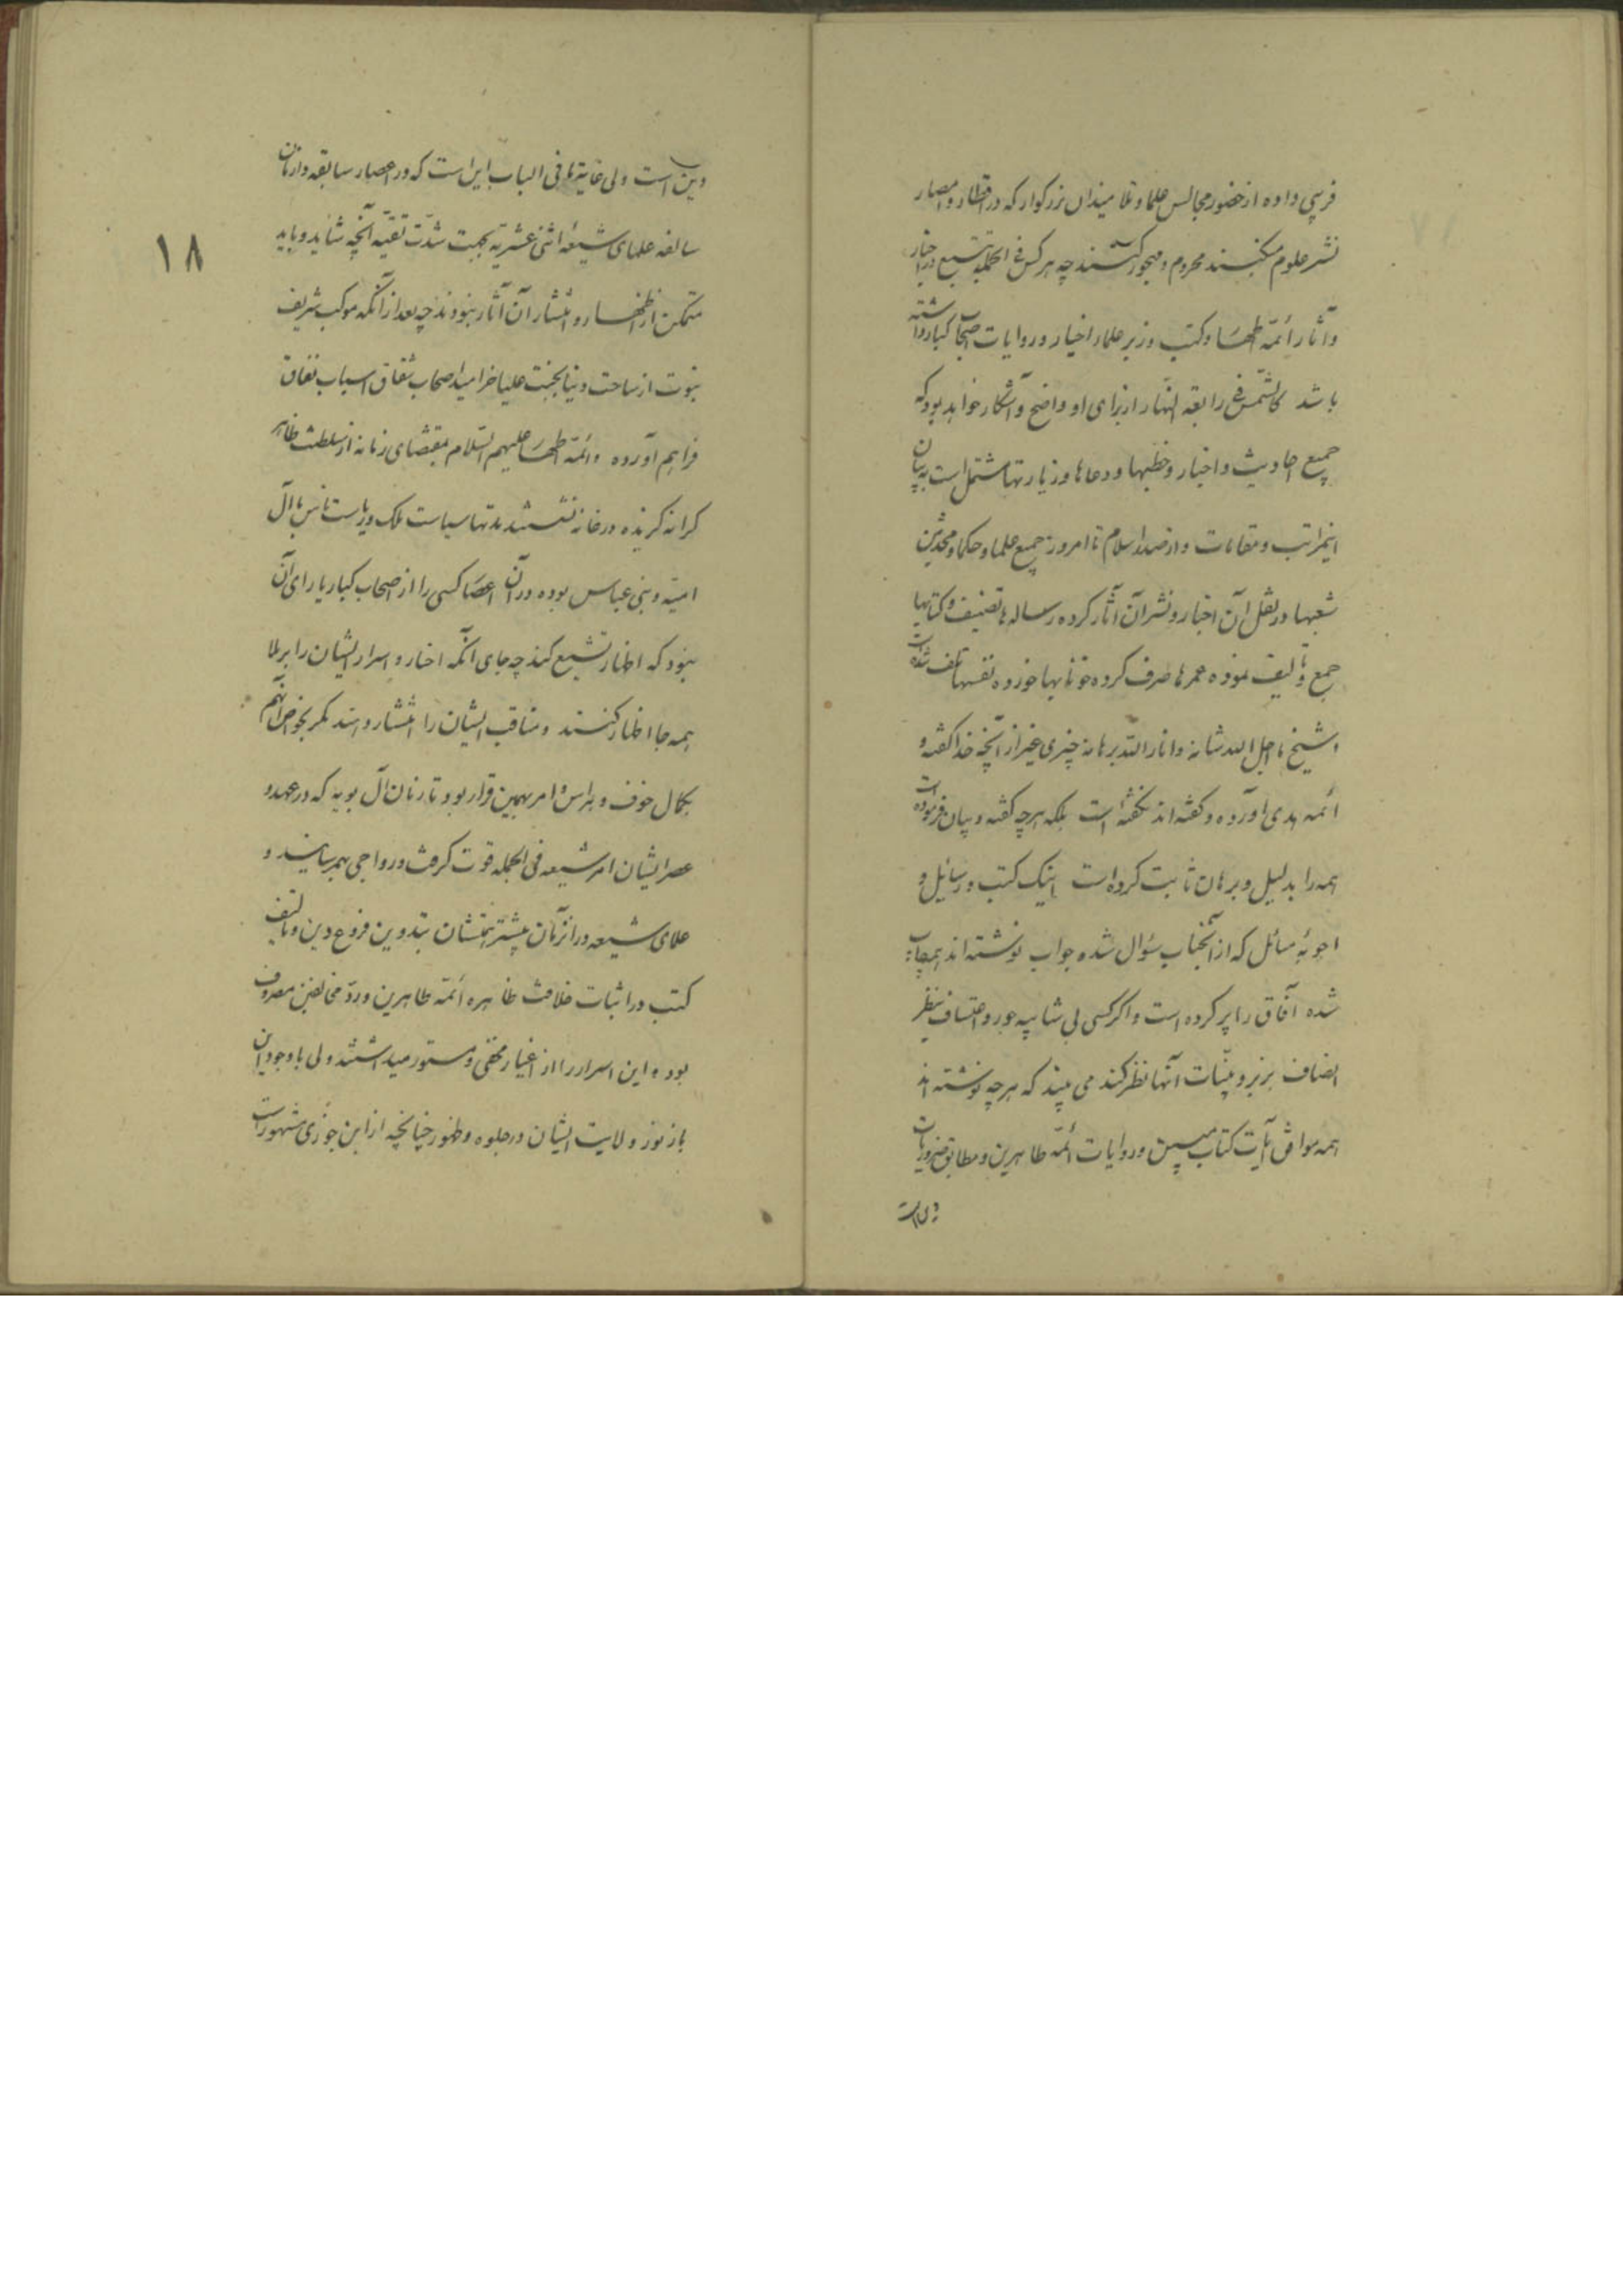 فریبی داده از حضور مجالس علما و تلامیذ آن بزرگوار که در اقطار و امصار
نشر علوم میکنند محروم و مهجور گشتند چه هر کس فی الجمله تتبع در اخبار
و آثار أئمّه اطهار و کتب و زبر علماء اخیار و روایات اصحاب کبار داشته
باشد کالشّمس فی رابعة النّهار از برای او واضح و آشکار خواهد بود که
جمیع احادیث و اخبار و خطبها و دعاها و زیارتها مشتمل است به بیان
اینمراتب و مقامات و از صدر اسلام تا امروز جمیع علما و حکما و محدّثین
شبها در نقل آن اخبار و نشر آن آثار کرده رساله ها تصنیف و کتابها
جمع و تألیف نموده عمرها صرف کرده خونابها خورده نفسها تلف شده است
و شیخ ما اجل الله شانه و انار الله برهانه چیزی غیر از آنچه خدا گفته و
ائمه هدی آورده و گفته اند نگفته است بلکه هر چه گفته و بیان فرموده است
همه را بدلیل و برهان ثابت کرده است اینک کتب و رسائل و
اجوبهٔ مسائل که از آنجناب سؤال شده جواب نوشته اند همه چاپ
شده آفاق را پر کرده است و اگر کسی بی شایبه جور و اعتساف بنظر
انصاف بزبر و بیّنات آنها نظر کند می بیند که هر چه نوشته اند
همه موافق آیات کتاب مبین و روایات أئمّه طاهرین و مطابق ضروریات
دین است
۱۸
دین است ولی غایة ما فی الباب این است که در اعصار سابقه و ازمان
سالفه علمای شیعهٔ اثنی عشریّه بجهت شدّت تقیّه آنچه شاید و باید
متمکن از اظهار و انتشار آن آثار نبودند چه بعد از آنکه موکب شریف
نبوّت از ساحت دنیا بجنّت علیا خرامید اصحاب شقاق اسباب نفاق
فراهم آورده و أئمّه اطهار علیهم السّلام بمقتضای زمانه از سلطنت ظاهر
کرانه گزیده در خانه نشستند مدتها سیاست ملک و ریاست ناس با آل
امیّه و بنی عباس بوده در آن اعصار کسی را از اصحاب کبار یارای آن
نبود که اظهار تشیع کند چه جای آنکه اخبار و اسرار ایشان را برملا
همه جا اظهار کنند و مناقب ایشان را انتشار دهند مگر بخواص آنهم
بکمال خوف و هراس و امر بهمین قرار بود تا زمان آل بویه که در عهد و
عصر ایشان امر شیعه فی الجمله قوت گرفت و رواجی بهمرسانید و
علمای شیعه در آنزمان بیشتر همتشان بتدوین فروع دین و تالیف
کتب در اثبات خلافت ظاهره أئمّه طاهرین و ردّ مخالفین مصروف
بوده این اسرار را از اغیار مخفی و مستور میداشتند ولی با وجود این
باز نور ولایت ایشان در جلوه و ظهور چنانچه از ابن جوزی مشهور است